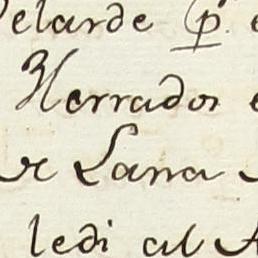 elarde p.
Herrador
Lana
ledi al